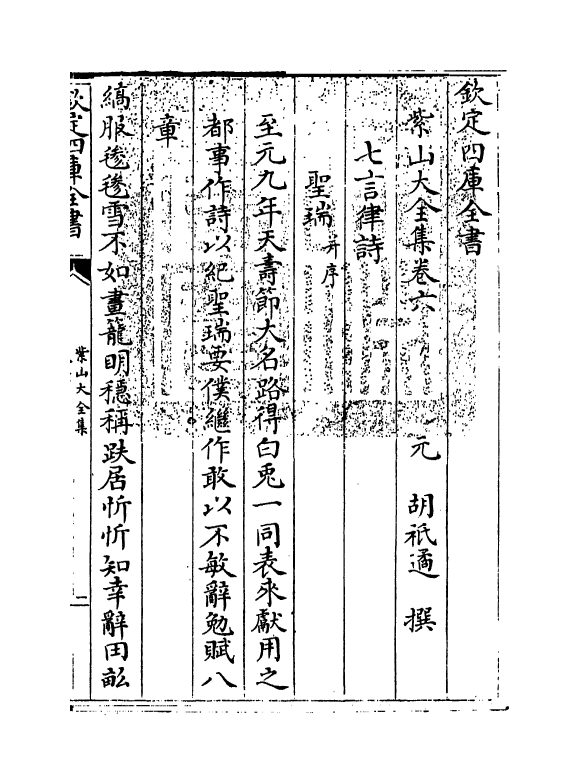 欽定四庫全書
紫山大全集卷六
元 胡祗遹 撰
七言律詩
聖瑞并序
至元九年天壽節大名路得白兎一同表來獻用之
都事作詩以紀聖瑞要僕繼作敢以不敏辭勉賦八
章
縞服毿毿雪不如畫籠明穩稱趺居忻忻知幸辭田畝
欽定四庫全書
紫山大全集